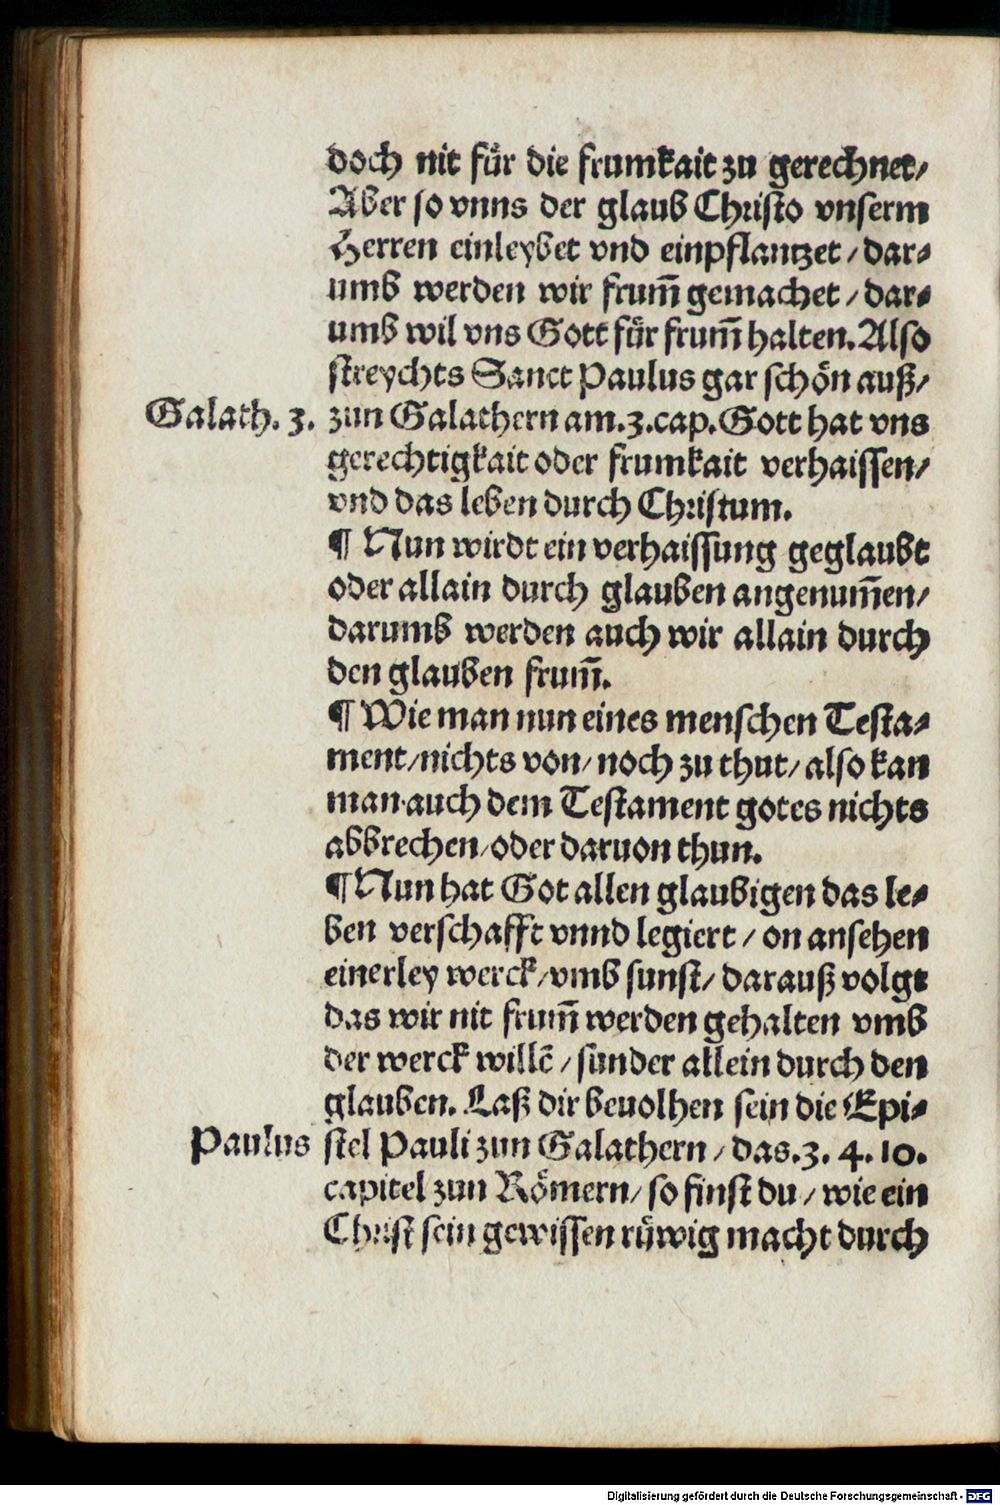 doch nit für die frumkait zu gerechnet/
Aber so vnns der glaub Christo vnserm
Herren einleybet vnd einpflantzet / dar⸗
umb werden wir frum̃ gemachet / dar⸗
umb wil vns Gott für frum̃ halten. Also
streychts Sanct Paulus gar schön auß/
Galath. 3. zun Galathern am.3.cap. Gott hat vns
gerechtigkait oder frumkait verhaissen/
vnd das leben durch Christum.
¶ Nun wirdt ein verhaissung geglaubt
oder allain durch glauben angenum̃en/
darumb werden auch wir allain durch
den glauben frum̃.
¶ Wie man nun eines menschen Testa⸗
ment/nichts von/ noch zu thut/ also kan
man auch dem Testament gotes nichts
abbrechen/oder daruon thun.
¶ Nun hat Got allen glaubigen das le⸗
ben verschafft vnnd legiert / on ansehen
einerley werck/vmb sunst/ darauß volgt
das wir nit frum̃ werden gehalten vmb
der werck willẽ / sunder allein durch den
glauben. Laß dir beuolhen sein die Epi⸗
Paulus stel Pauli zun Galathern / das.3. 4. 10.
capitel zun Römern/ so finst du / wie ein
Christ sein gewissen rüwig macht durch
Digitalisierung gefördert durch die Deutsche Forschungsgemeinschaft - DFG